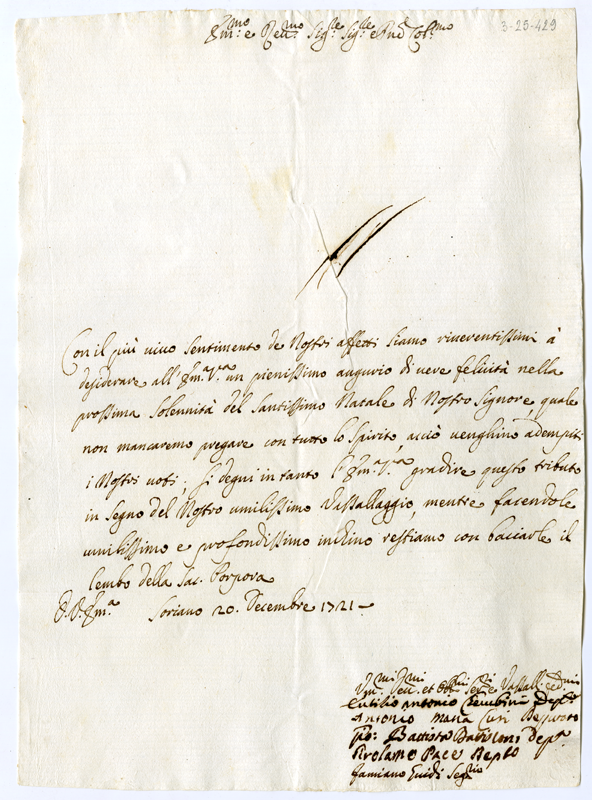 3-25-429
Em.mo e Rev.mo Sig.re Sig.re e Pne Col.mo
Con il più vivo sentimento de Nostri affetti siamo riverentissimi à
desiderare all'Em.a V.ra un pienissimo augurio di vere felicità nella
prossima solennità del Santissimo Natale di Nostro Signore, quale
non mancaremo pregare con tutto lo Spirito acciò venghino adempiti
i Nostri voti; si degni in tanto l'Em.a V.ra gradire questo tributo
in segno del Nostro umilissimo Vassallaggio mentre facendole
umilissimo e profondissimo inchino restiamo con bacciarle il
lembo della Sac. Porpora
D.V. Em.a Soriano 20. Decembre 1721
Um.mi Dev.mi et Obb.mi Ser.ri e Vassalli
Antonio Dep.to
Antonio Maria
Gio: Battista Dep.to
Girolamo Pace Dep.to
Damiano Guidi Seg.rio